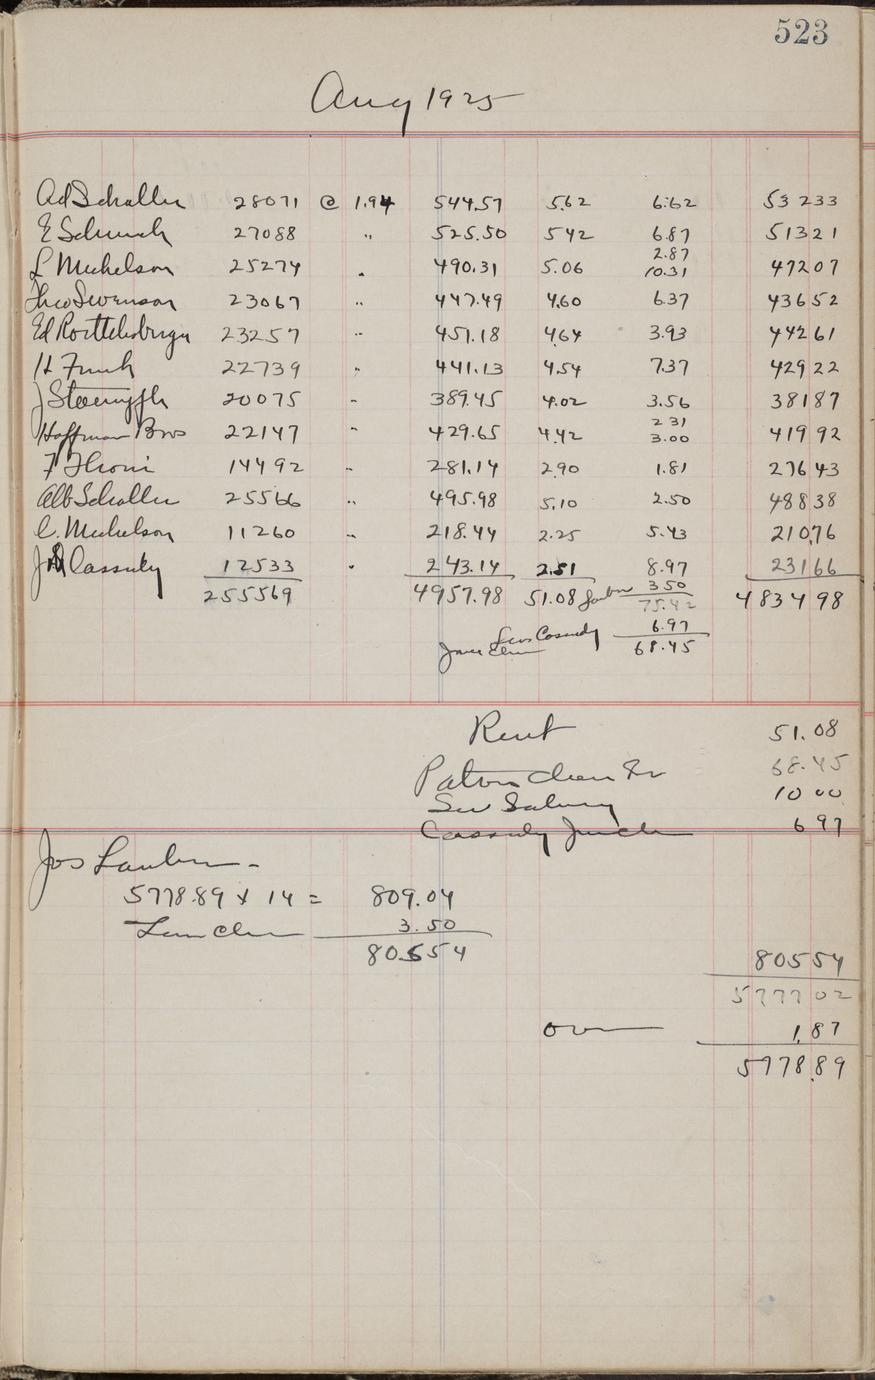 523
Aug 1925
Ad Schaller 28071 @ 1.94 544.57 5.62 6.62 532 33
E Schunch 27088 " 525.50 5 42 6.87 513 21
2.87
L Michelson 25274 " 490.31 5.06 10.31 472 07
Theo Swenson 23067 " 447.49 4.60 6.37 436 52
Ed 23257 " 451.18 4.64 3.93 442 61
H Funk 22739 " 441.13 4.54 7.37 429 22
J 20075 " 389.45 4.02 3.56 381 87
2 31
Hoffman Bros 22147 " 429.65 4.42 3.00 419 92
F Thoni 14492 " 281.14 2.90 1.81 276 43
Alb Schaller 25566 " 495.98 5.10 2.50 488 38
C. Michelson 11260 " 218.44 2.25 5.43 210,76
Cassidy 12533 " 243.14 2.51 8.97 231 66
3 50
255569 4957.98 51.08 75.42 4834 98
Less Cassidy 6.97
68.45
Rent 51.08
Patron 68.45
Sec Salary 10 00
Cassidy 6 97
Jos
5778.89 x 14 = 809.04
3.50
805 54
805 54
5777 02
over 1.87
5778.89